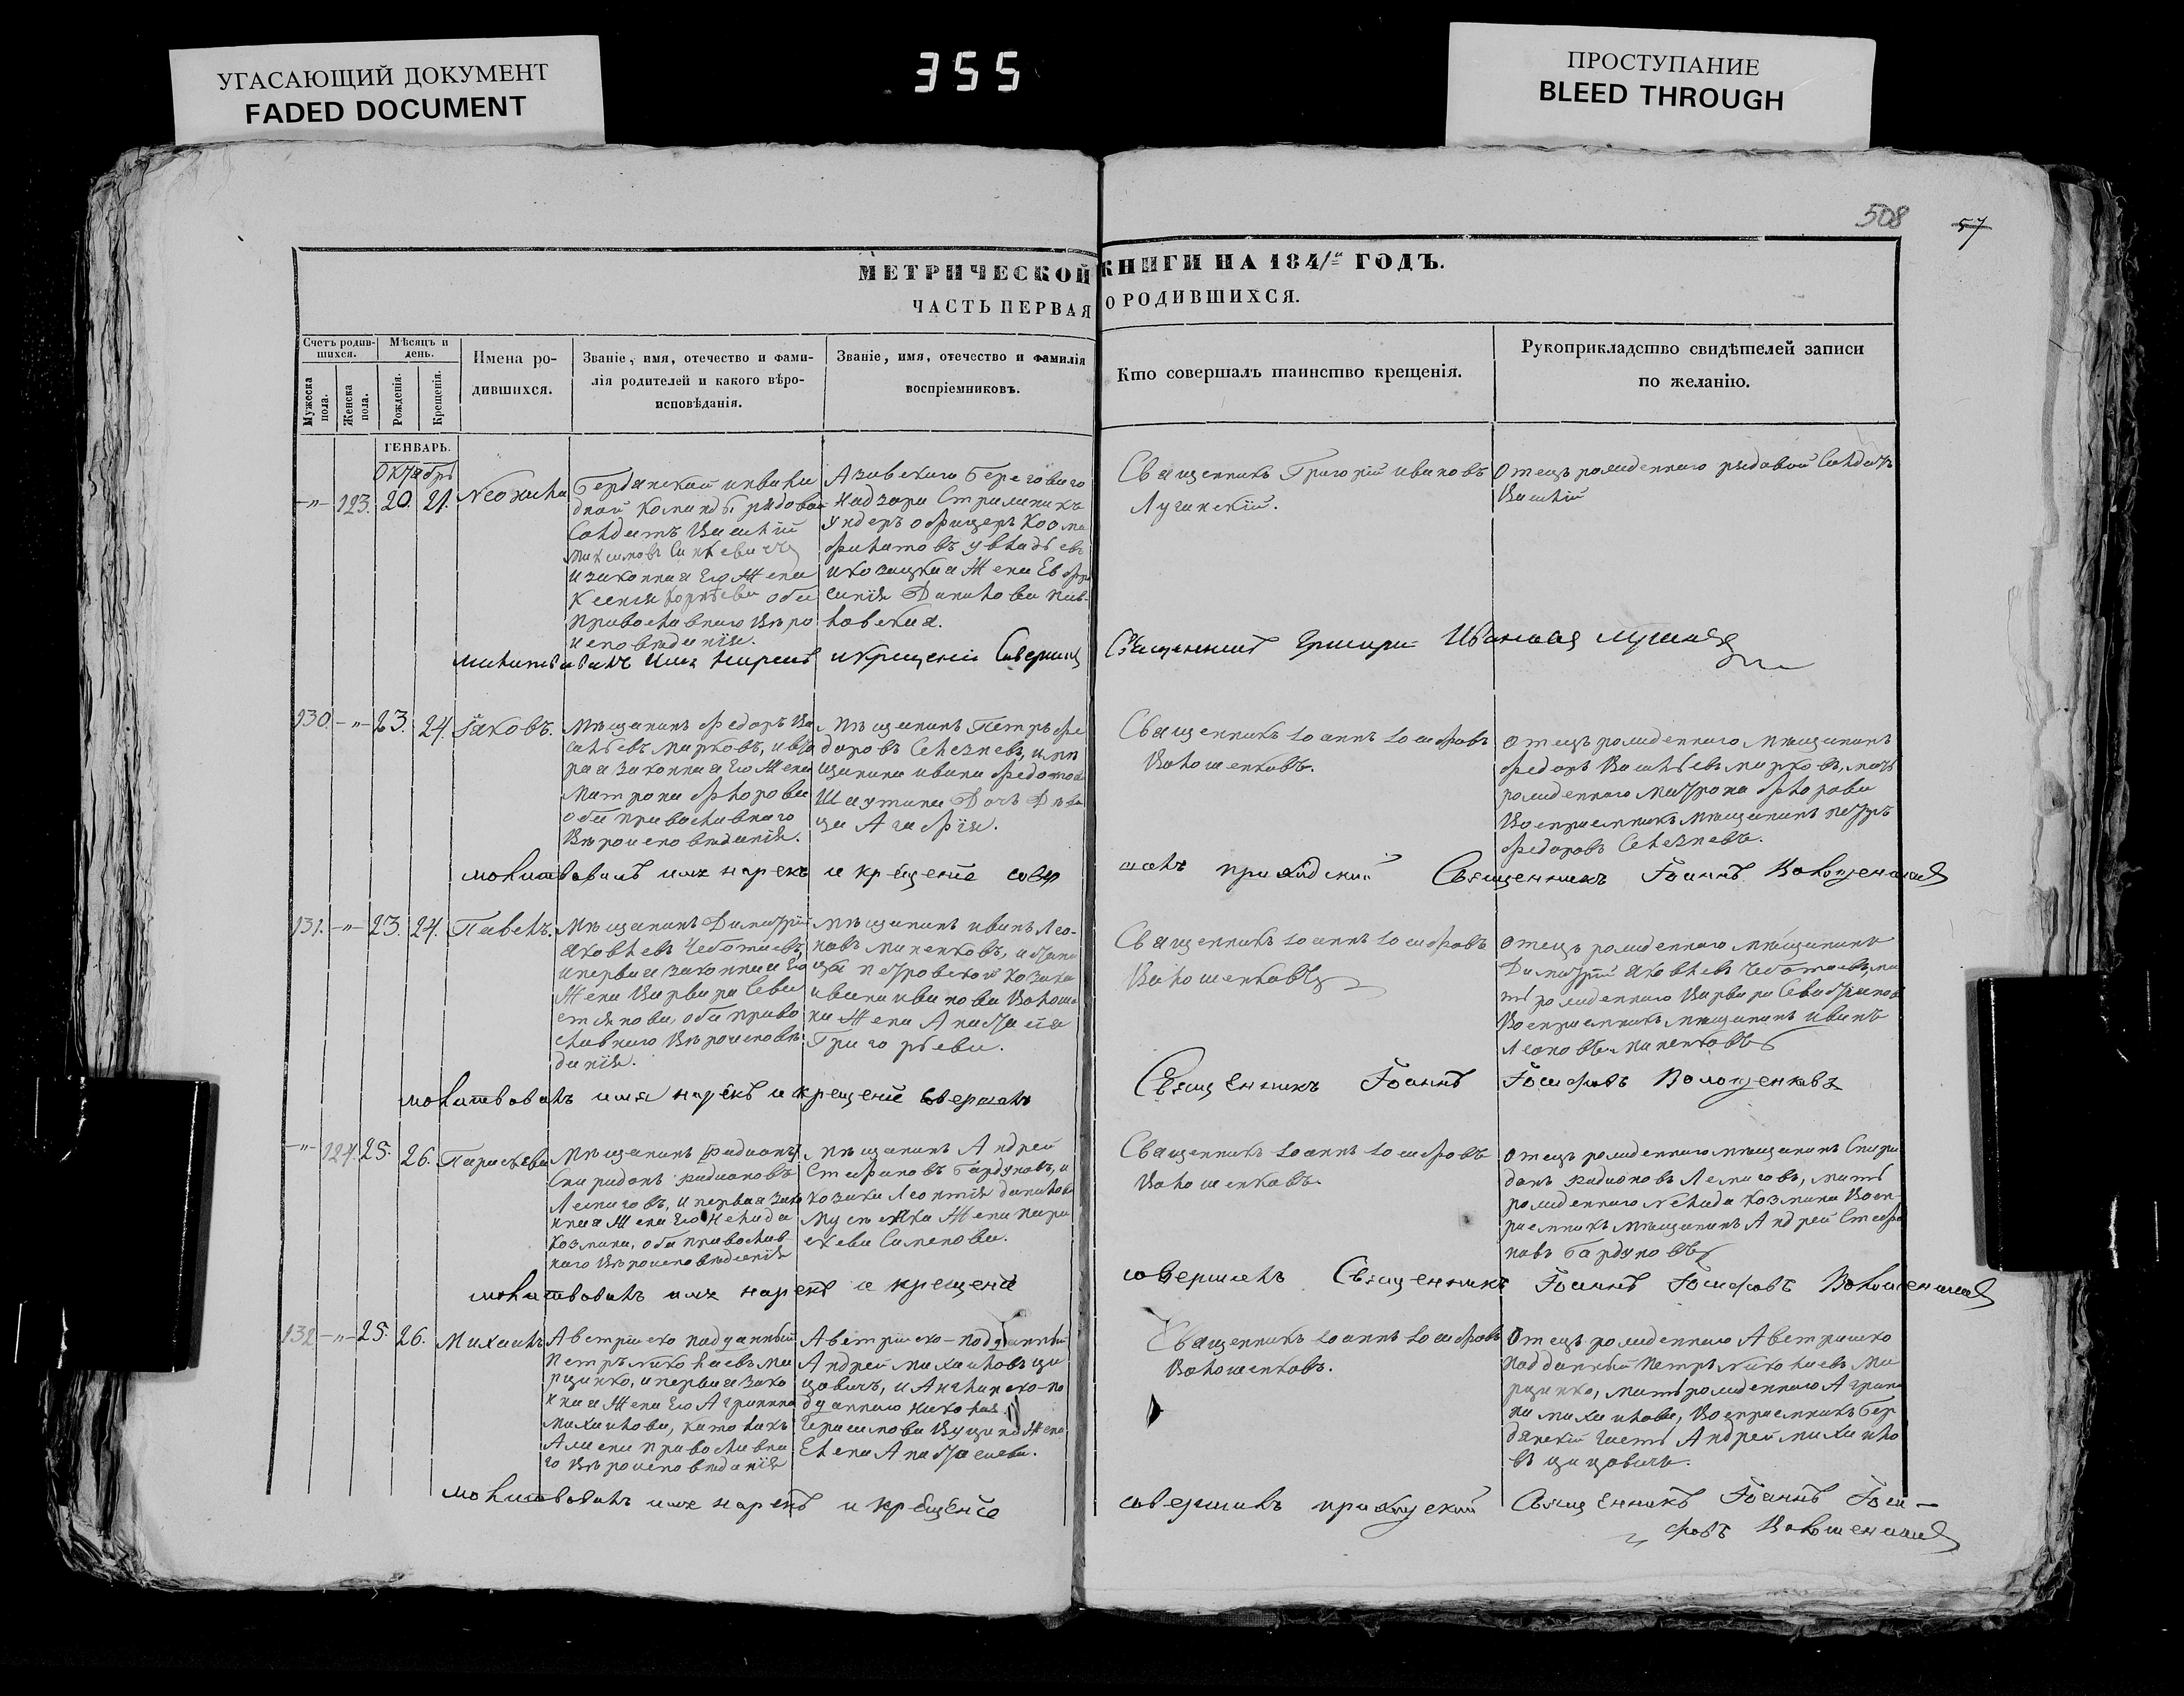 УГАСАЮЩИЙ ДОКУМЕНТ
FADED DOCUMENT
355
ПРОСТУПАНИЕ
BLEED THROUGH
508
57
МЕТРИЧЕСКОЙ КНИГИ НА 1841й ГОДЪ.
ЧАСТЬ ПЕРВАЯ О РОДИВШИХСЯ.
Счетъ родив-
шихся.
Мужеска
пола.
Женска
пола.
Мѣсяцъ и
день.
Рожденія.
Крещенія.
Имена ро-
дившихся.
Званіе, имя, отечество и фами-
лія родителей и какого вѣро-
исповѣданія.
Званіе, имя, отечество и фамилія
воспріемниковъ.
Кто совершалъ таинство крещенія.
Рукоприкладство свидѣтелей записи
по желанію.
ГЕНВАРЬ.
Октябрь
-"- 123. 20. 21.
Бердянской инвали
дной команды рядовой
Солдатъ Василій
и законная Его Жена
Ксенія обои
православнаго вѣро
исповѣданія.
Азовского Берегового
надзора
Ундеръ офицеръ Козма
и козацкая Жена Евфро
синія Данилова
Священникъ Григорій ивановъ
Лучинскій.
Отецъ рожденнаго рядовой Солдатъ
Василій
молитвовалъ имя нарекъ и крещеніе Совершилъ
Священникъ Григорій Ивановъ
130. -"- 23. 24. Іаковъ.
Мѣщанинъ Федоръ Ва
сильевъ Марковъ, и вто
рая законная Его Жена
Матрона Флорова
оба православнаго
Вѣроисповѣданія.
Мѣщанинъ Петръ Фе
доровъ Селезневъ, и мѣ
щанина ивана Федотова
Шаутина Дочь Дѣви
ца Агафія.
Священникъ Іоаннъ Іосифовъ
Волошенковъ.
Отецъ рожденнаго мѣщанинъ
Федоръ Васильевъ Марковъ, мать
рожденнаго Матрона Флорова
Воспріемникъ мѣщанинъ Петръ
Федоровъ Селезневъ.
молитвовалъ имя нарекъ и крещеніе совер
шалъ приходскій Священникъ Іоаннъ Волошенковъ
131. -"- 23. 24. Павелъ.
Мѣщанинъ Димитрій
Яковлевъ Чеботаевъ,
и первая законная Его
Жена Варвара Сева
стянова, оба право
славнаго Вѣроисповѣ
данія.
Мѣщанинъ иванъ Лео-
новъ Миненковъ, и стани
цы Петровской козака
ивана иванова Волоши
на Жена Анастасія
Григорьева.
Священникъ Іоаннъ Іосифовъ
Волошенковъ
Отецъ рожденнаго мѣщанинъ
Димитрій Яковлевъ Чеботаевъ, ма
ть рожденнаго Варвара Севастянова
Воспріемникъ мѣщанинъ иванъ
Леоновъ Миненковъ
молитвовалъ имя нарекъ и крещеніе совершалъ
Священникъ Іоаннъ Іосифовъ Волошенковъ
-"- 124. 25. 26. Парасѣева
Мѣщанинъ
Спиридонъ Радионовъ
и первая зако
нная Жена Его Нелида
Козмина, оба православ-
наго Вѣроисповѣданія
Мѣщанинъ Андрей
Стефановъ Бардуковъ, и
козака Леонтія Данилова
Жена Пара
скева Симеонова.
Священникъ Іоаннъ Іосифовъ
Волошенковъ.
Отецъ рожденнаго мѣщанинъ Спири
донъ Радионовъ мать
рожденнаго Нелида Козмина Восп
ріемникъ мѣщанинъ Андрей Стефа
новъ Бардуковъ
молитвовалъ имя нарекъ и крещеніе
совершалъ Священникъ Іоаннъ Іосифовъ Волошенковъ
132 -"- 25. 26. Михаилъ
Австрійско подданный
Петръ Николаевъ Ма
рцинко, и первая зако
нная Жена Его Агрипина
Михаилова, католикъ
А жена православна
го Вѣроисповѣданія
Австрійско-подданный
Андрей Михаиловъ Ци
цовичъ, и Англинско-по
дданнаго Николая
Герасимова Вуцина Жена
Елена Анастасиева.
Священникъ Іоаннъ Іосифовъ
Волошенковъ.
Отецъ рожденнаго Австрийско
подданный Петръ Николаевъ Ма
рцинко, мать рожденнаго Агрипи
на Михаилова, Воспріемникъ Бер
дянскій гость Андрей Михаило
въ Цицовичъ.
молитвовалъ имя нарекъ и крещеніе
совершилъ приходскій Священникъ Іоаннъ Іоси-
фовъ Волошенковъ